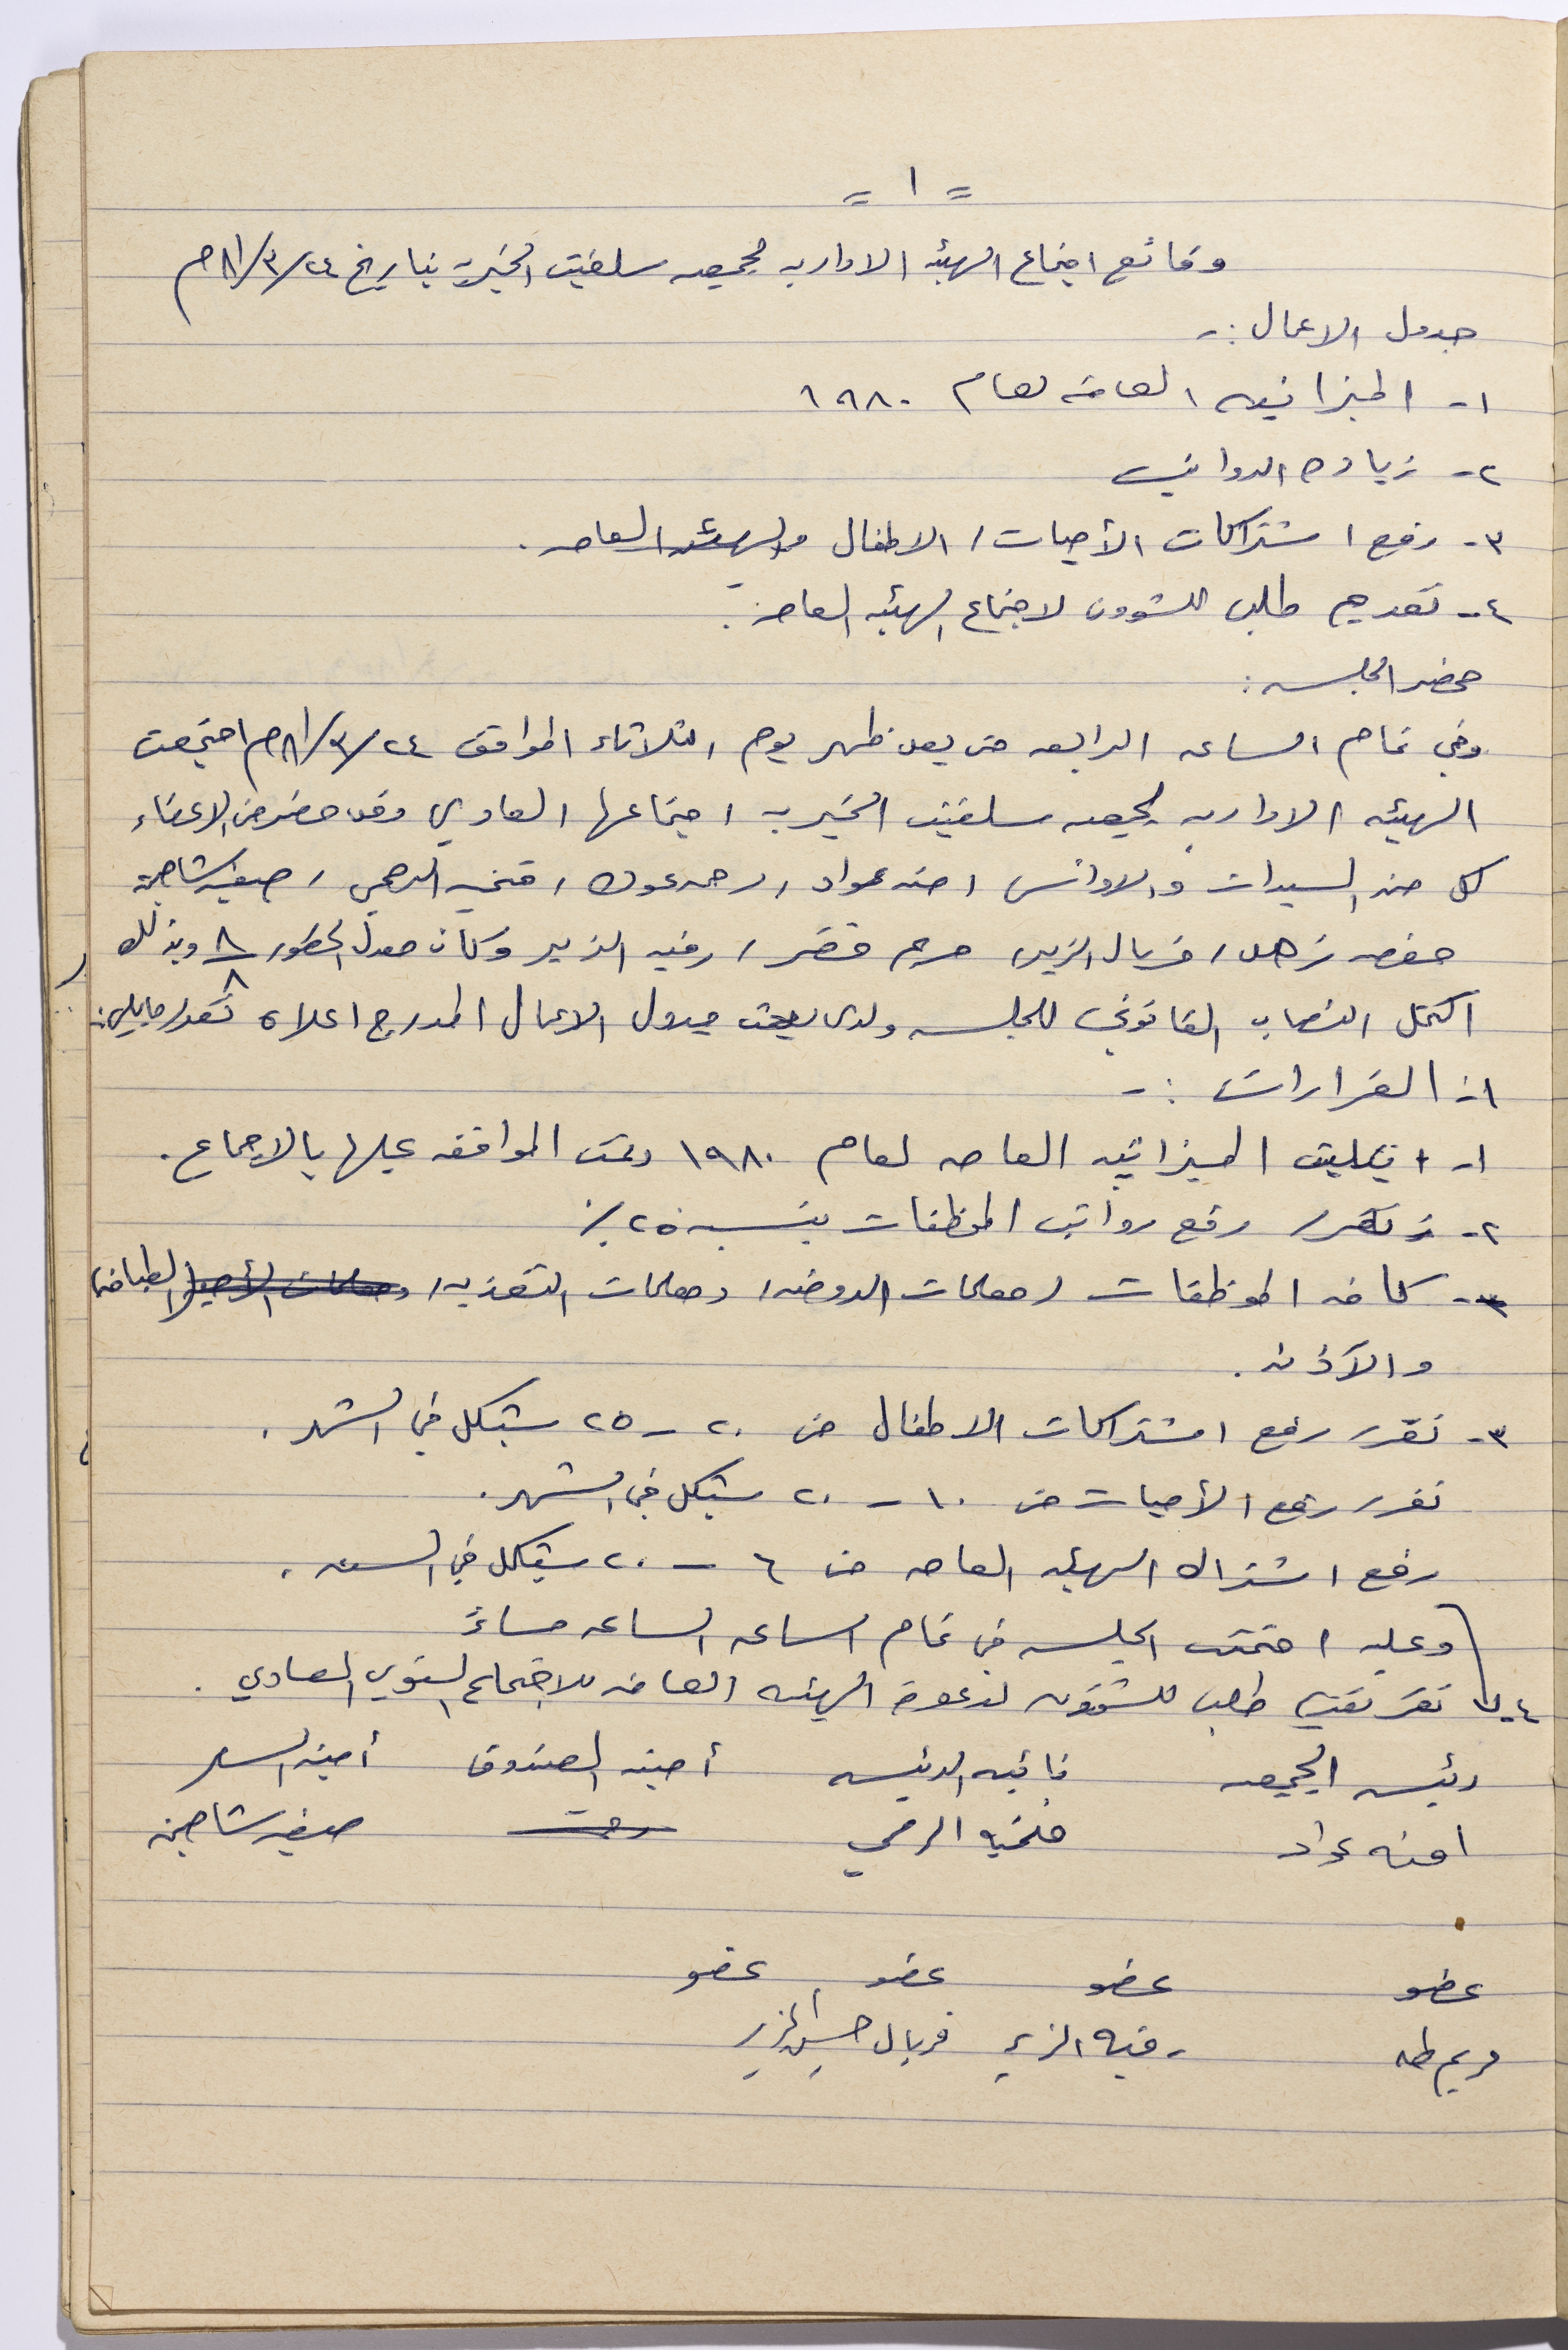 = ١ =
وقائع اجتماع الهيئه الاداريه لجمعيه سلفيت الخيرية بتاريخ ٢٤/٣/٨١م
جدول الاعمال :-
١- الميزانيه العامه لعام ١٩٨٠
٢- زياده الرواتب
٣- رفع اشتراكات الأميات / الاطفال والهيئه العامه .
٤- تقديم طلب للشؤون لاجتماع الهيئه العامه .
محضر الجلسه :
وفي تمام الساعه الرابعه من بعد ظهر يوم الثلاثاء الموافق ٢٤/٣/٨١م اجتمعت
الهيئه الاداريه لجمعيه سلفيت الخيريه اجتماعها العادي وقد حضر من الاعضاء
كل من السيدات والاوانس امنه عواد / رحمه عوده / فتحيه الرمحي / صفيه شاهين
حفصه زهد / فريال الزير مريم خضر / رقيه الزير وكان معدل الحضور ٨/٨ وبذلك
اكتمل النصاب القانوني للجلسه ولدى بحث جدول الاعمال المدرج اعلاه تقرر مايلي :
١- القرارات :-
١- تليت الميزانيه العامه لعام ١٩٨٠ وتمت الموافقه عليها بالاجماع .
٢- تقرر رفع رواتب الموظفات بنسبه ٢٥٪
٣- كافه الموظفات / معلمات الروضه / ومعلمات التغذيه / ومعلمات الأميه / الخياطه
والآذنه .
٣- تقرر رفع اشتراكات الاطفال من ٢٠ - ٢٥ شيكل في الشهر .
تقرر رفع الأميات من ١٠ - ٢٠ شيكل في الشهر .
رفع اشتراك الهيئه العامه من ٦ - ٢٠ شيكل في السنه .
وعليه اختتمت الجلسه في تمام الساعه الساعه مساءً
٤- تقرر تقديم طلب للشؤون لدعوة الهيئه العامه للاجتماع السنوي العادي .
رئيسه الجمعيه نائبه الرئيسه أمينه الصندوق أمينه السر
امنه عواد فتحيه الرمحي رحمه صفيه شاهين
عضو عضو عضو عضو
مريم طه رقيه الزير فريال حسين الزير